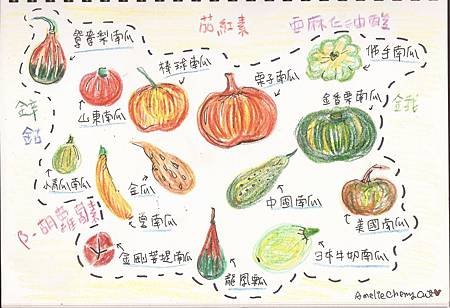 茄紅素
亞麻仁油酸
鴛鴦梨南瓜
棒球南瓜
栗子南瓜
佛手南瓜
山東南瓜
金香栗南瓜
鋅
鈷
小布瓜南瓜
金瓜
雪南瓜
中國南瓜
美國南瓜
β-胡蘿蔔素
金剛菩堤南瓜
龍鳳瓢
日本牛奶南瓜
AmelieChengQue